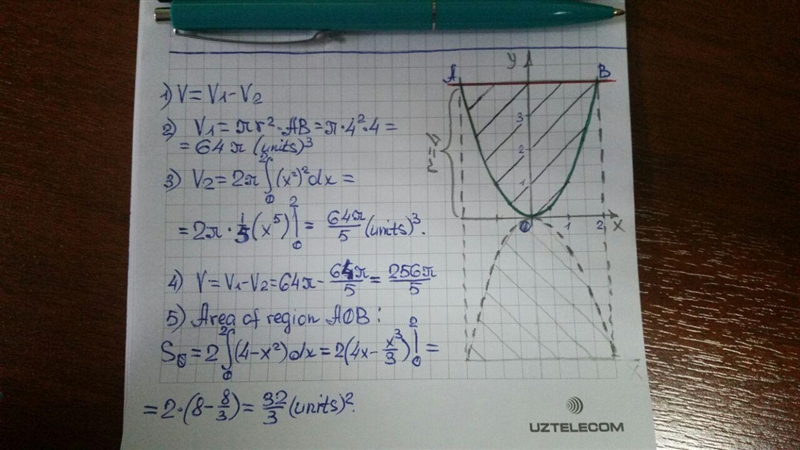 1) V = V₁ - V₂
2) V₁ = πr²·AB = π·4²·4 =
= 64π (units)³
3) V₂ = 2π∫₀² (x²)² dx =
= 2π·1/5 (x⁵)|₀² = 64π/5 (units)³.
4) V = V₁ - V₂ = 64π - 64π/5 = 256π/5
5) Area of region AOB:
S₀ = 2∫₀² (4 - x²) dx = 2(4x - x³/3)|₀² =
= 2·(8 - 8/3) = 32/3 (units)².
y
A
B
3
2
1
r=4
O
1
2
x
UZTELECOM